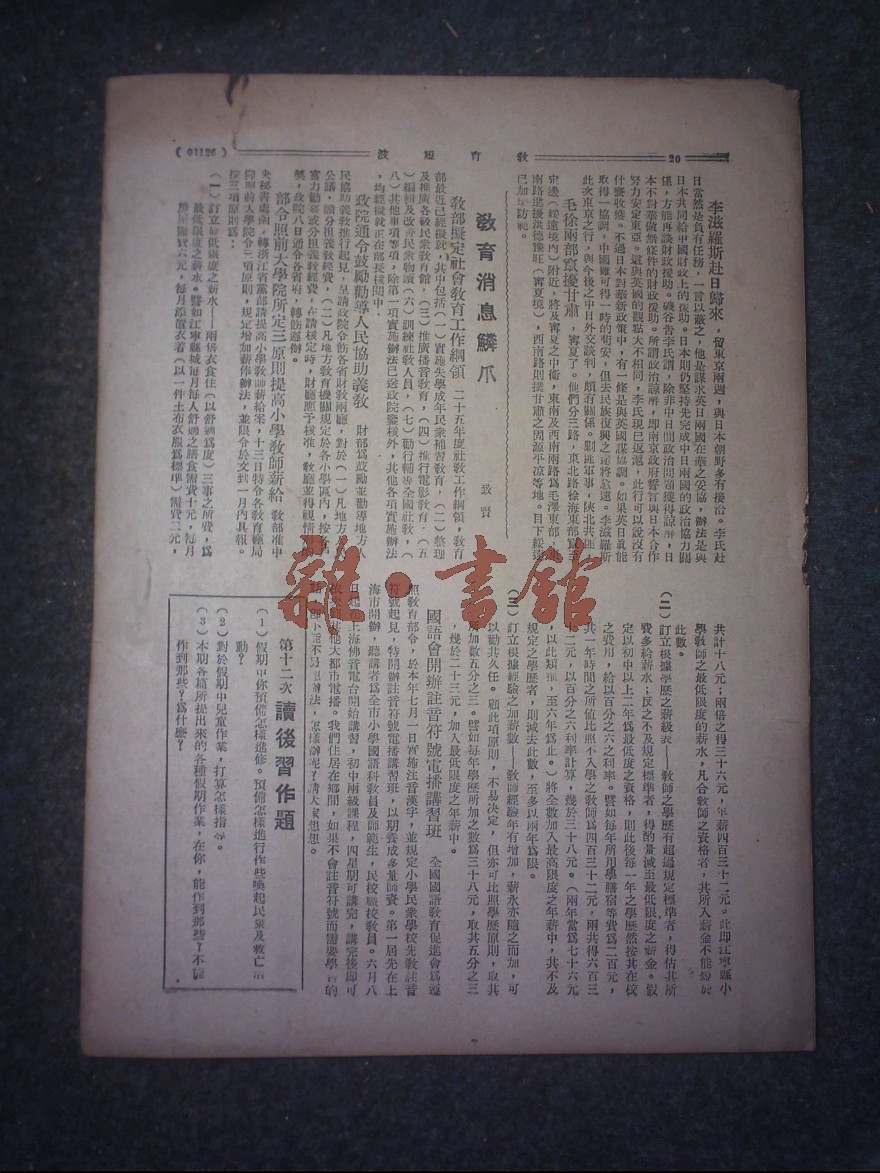 20
教育短波
(01126)
李滋羅斯赴日歸來，留東京兩週，與日本朝野多有接洽。李氏赴
日當然是負有任務，一言以蔽之，他是謀求英日兩國在華之妥協，辦法是與
日本共同給中國財政上的援助。日本則仍堅持先完成中日兩國的政治協力關
係，方能再談財政援助。磯谷告李氏謂，除非中日間政治問題獲得諒解，日
本不對華做無條件的財政援助。所謂政治諒解，即南京政府誓言與日本合作
努力安定東亞。這與英國的觀點大不相同，李氏現已返滬，此行可以說沒有
什麼收獲。不過日本對華新政策中，有一條是與英國謀協調。如果英日眞能
取得一協調，中國雖可得一時的苟安，但去民族復興之道將愈遠。李滋羅斯
此次東京之行，與今後之中日外交談判，頗有關係。剿匪軍事，陝北共
毛徐兩部竄擾甘肅，寗夏了。他們分三路，東北路徐海東部竄至
定邊（綏遠境內）附近，將及寗夏之中衛，東南及西南兩路爲毛澤東部，東
南路逃擾洪德豫旺（寗夏境），西南路則撲甘肅之固源平凉等地。目下綏遠
已加緊防範。
教育消息鱗爪
致賢
敎部擬定社會敎育工作綱領　二十五年度社敎工作綱領，敎育
部最近已經擬就，其中包括（一）實施失學成年民衆補習敎育，（二）整理
及推廣各級民衆敎育館，（三）推廣播音敎育，（四）推行電影敎育，（五
）編輯及改善民衆物讀（六）訓練社敎人員，（七）勸行輔導全國社敎，（
八）其他事項等項，除第一項實施辦法已送政院鑒核外，其他各項實施辦法
，均經擬就正在部長核閱中．
政院通令鼓勵勸導人民協助義敎　財部爲鼓勵並勸導地方人
民協助義敎推行起見，呈請政院令飭各省財敎兩廳，對於（一）凡地方
公議，願分担義敎經費，（二）凡地方敎育機關規定於各小學區內，按各
富力勸募或分担義敎經費，在請核定時，財廳應予核准，敎廳並得視情
獎，政院八日通令各省府，轉飭遵辦。
部令照前大學院所定三原則提高小學敎師薪給　敎部准中
央秘書處函，轉浙江省黨部請提高小學敎師薪給案，十三日特令各敎育廳局
仰照前大學院令三項原則，規定增加薪俸辦法，並限令於文到一月內具報。
按三項原則爲：
（一）訂立最低限度之薪水——兩倍衣食住（以舒適爲度）三事之所費，爲
最低限度之薪水。譬如江寧縣城每月每人舒適之膳食需費十元，每月
房屋需費六元，每月添置衣着（以一件土布衣服爲標準）需費二元，
共計十八元；兩倍之得三十六元，年薪四百三十二元。此即江寧縣小
學敎師之最低限度的薪水，凡合敎師之資格者，其所入薪金不能短於
此數。
（二）訂立根據學歷之薪級表——敎師之學歷有超過規定標準者，得估其所
費多給薪水；反之不及規定標準者，得酌量減至最低限度之薪金。假
定以初中以上二年爲最低度之資格，則此後每一年之學歷然按其在校
之費用，給以百分之六之利率。譬如每年所用學膳宿等費爲二百元，
共二年時間之所值比照不入學之敎師爲四百三十二元，兩共得六百三
十二元，以百分之六利率計算，幾於三十八元。（兩年當爲七十六元
，以此類推，至六年爲止。）將全數加入最高限度之年薪中，其不及
規定之學歷者，則減去此數，至多以兩年爲限。
（三）訂立根據經驗之加薪數——敎師經驗年有增加，薪水亦隨之而加，可
以勸其久任。顧此項原則，不易決定，但亦可比照學歷原則，取其
所加數五分之三。譬如每年學歷所加之數爲三十八元，取其五分之三
，幾於二十三元，加入最低限度之年薪中。
國語會開辦註音符號電播講習班　全國國語敎育促進會爲遵
照敎育部令，於本年七月一日實施注音漢字，並規定小學民衆學校先敎註音
符號起見，特開辦註音符號電播講習班，以期養成多量師資。第一屆先在上
海市開辦，聽講者爲全市小學國語科敎員及師範生，民校職校敎員。六月八
日起上海佛音電台開始講習，初中兩級課程，四星期可講完，講完後即可
其他大都市電播。我們住居在鄉間，如果不會註音符號而需要學習的
，怎樣辦呢？請大家想想。
第十二次 讀後習作題
（1）假期中你預備怎樣進修。預備怎樣進行作些喚起民衆及救亡活
動？
（2）對於假期中兒童作業，打算怎樣指導。
（3）本期各篇所提出來的各種假期作業，在你，能作到那些？不能
作到那些？爲什麼？
雜·書館